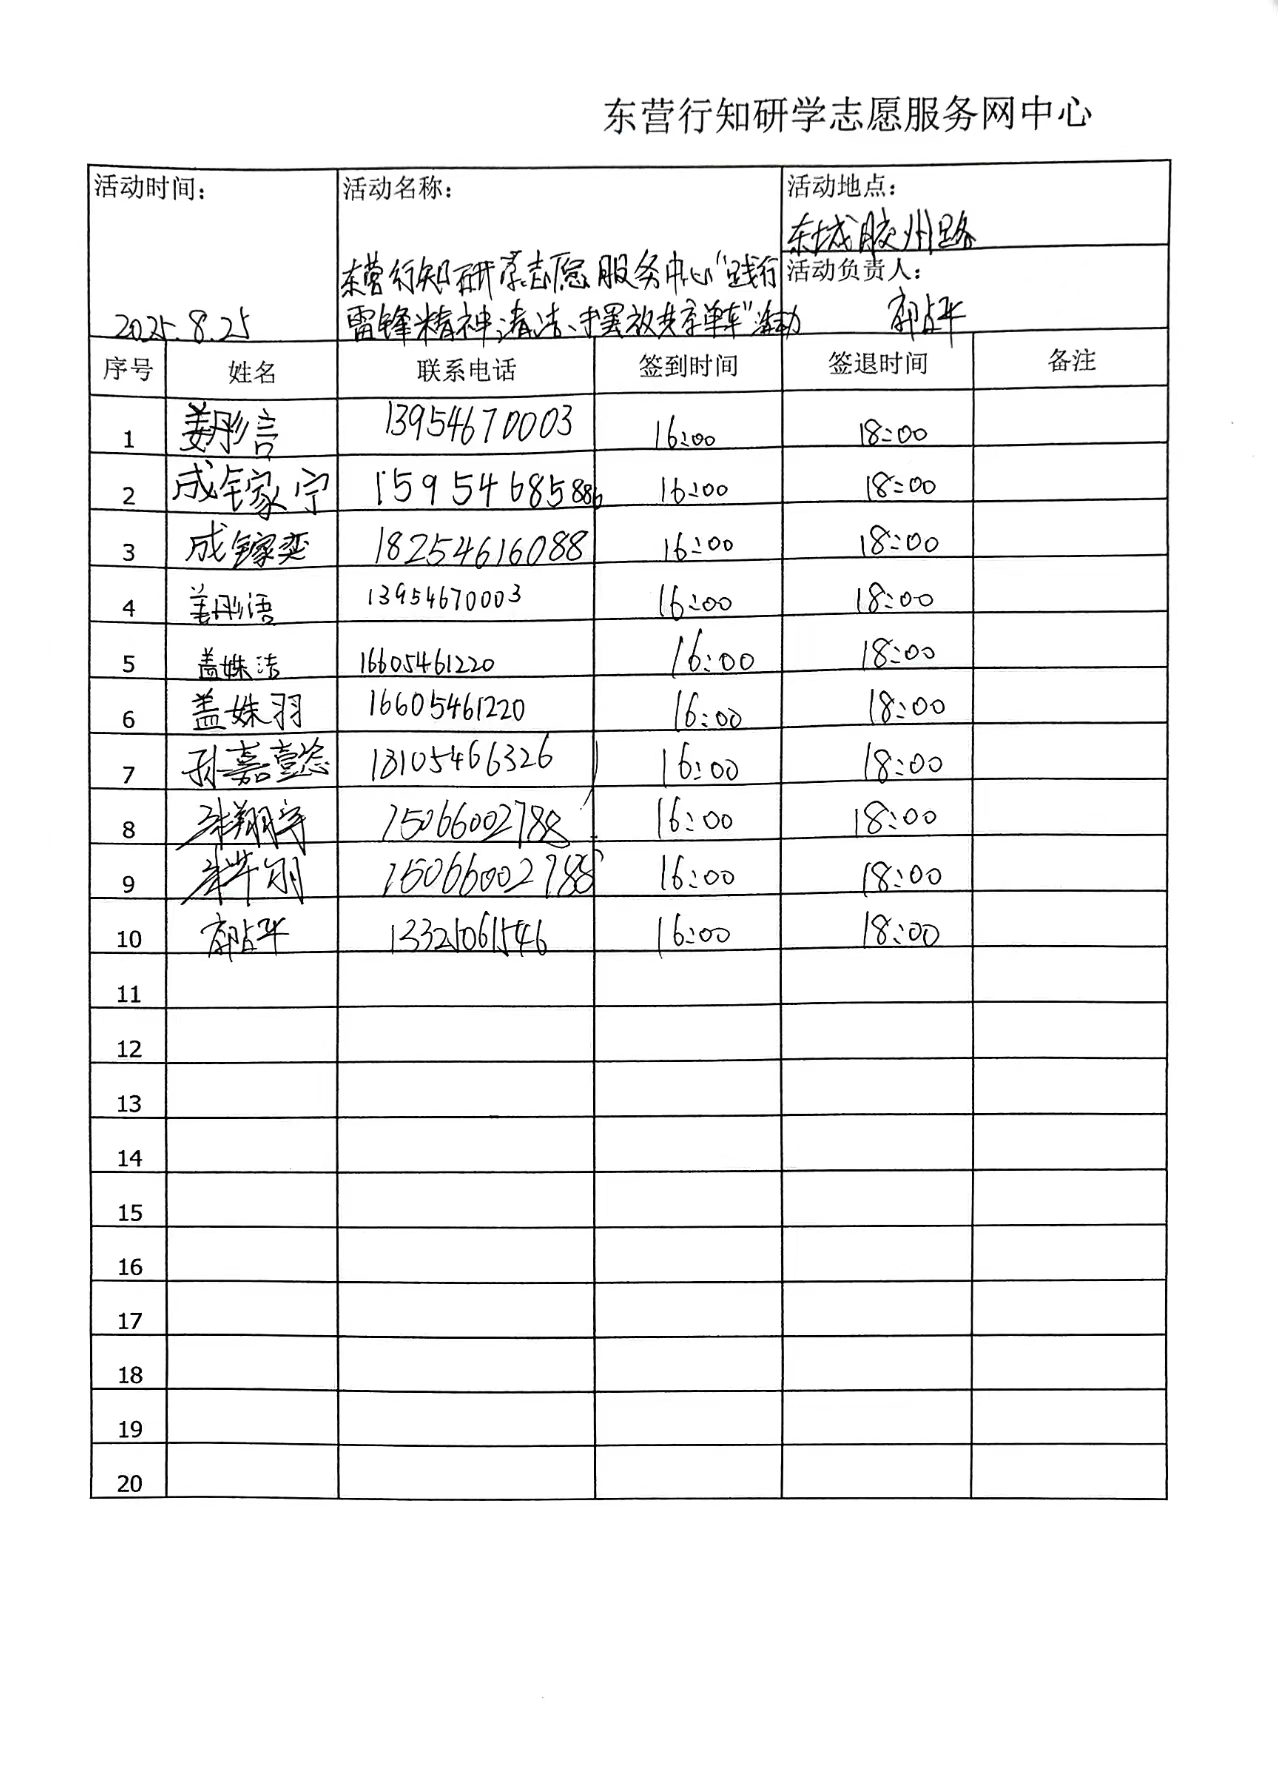 东营行知研学志愿服务网中心
活动时间： 活动名称： 活动地点：
东城胶州路
东营行知研学志愿服务中心“践行 活动负责人：
2025.8.25 雷锋精神,清洁、摆放共享单车”活动 郭占平
序号 姓名 联系电话 签到时间 签退时间 备注
1 姜彤言 13954670003 16:00 18:00
2 成镓宁 15954685886 16:00 18:00
3 成镓奕 18254616088 16:00 18:00
4 姜彤语 13954670003 16:00 18:00
5 盖姝洁 16605461220 16:00 18:00
6 盖姝羽 16605461220 16:00 18:00
7 孙嘉懿 18105466326 16:00 18:00
8 15066002788 16:00 18:00
9 15066002788 16:00 18:00
10 郭占平 13321061546 16:00 18:00
11
12
13
14
15
16
17
18
19
20